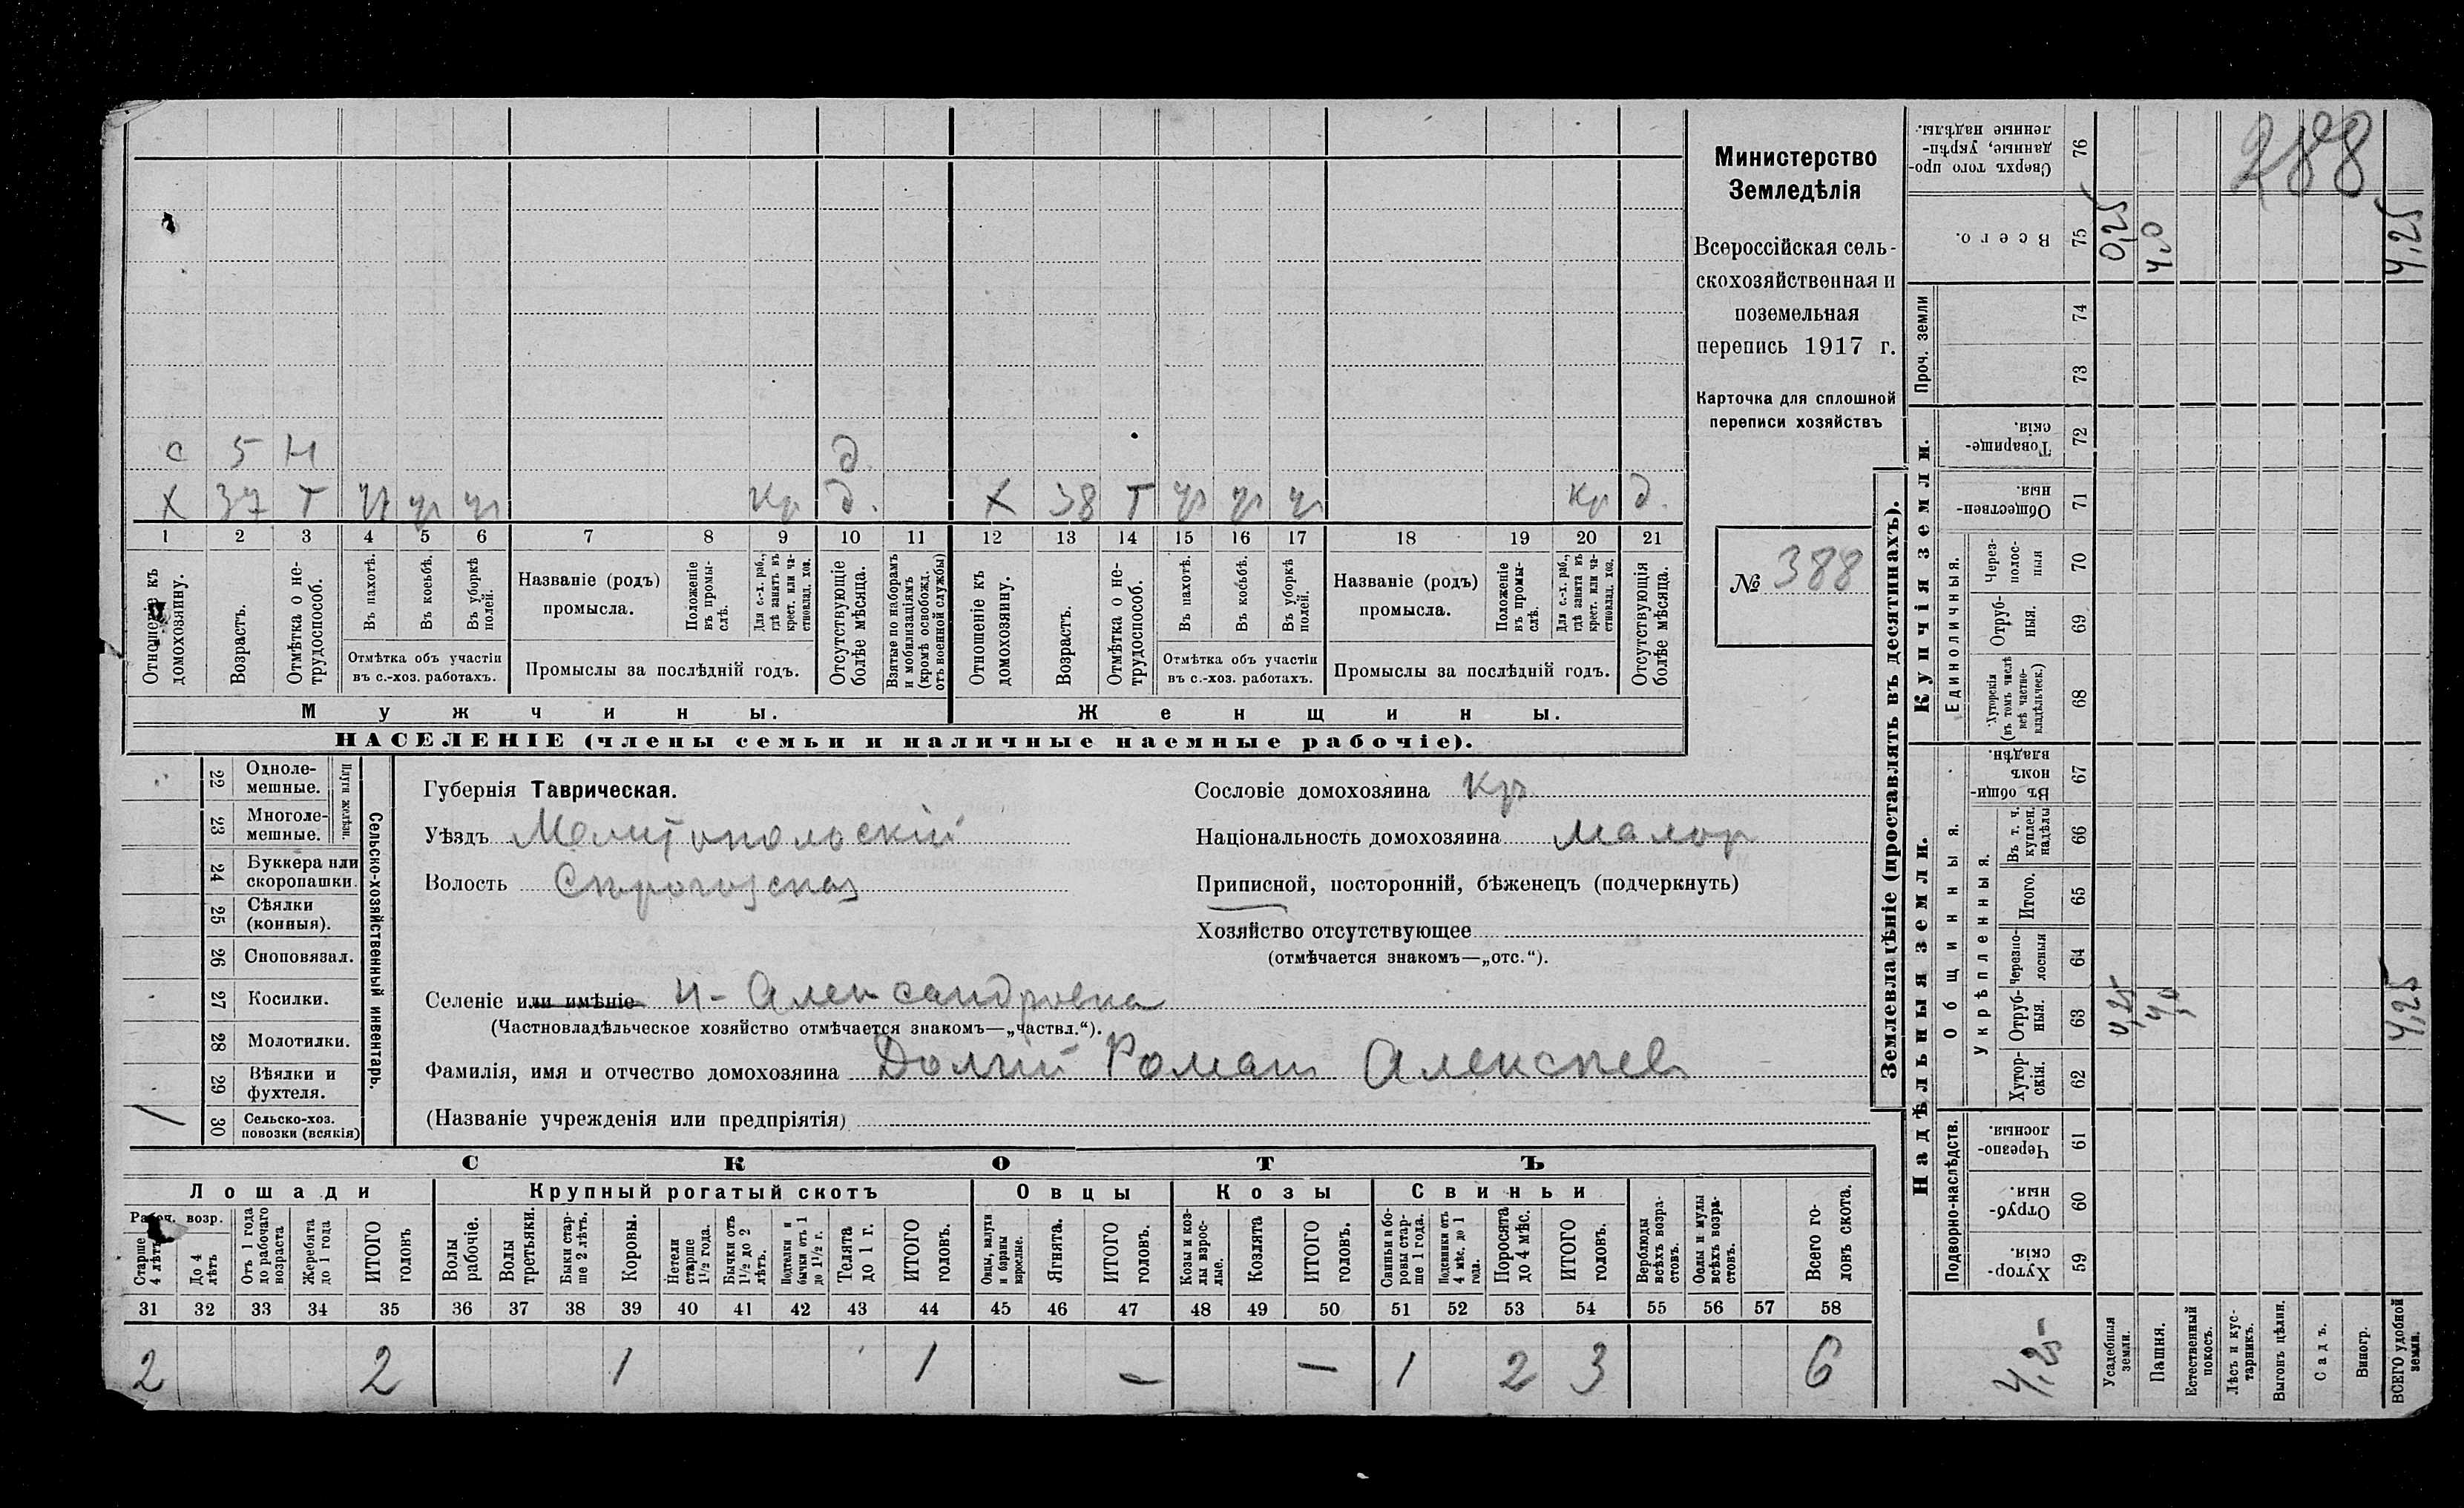 с 5 Н д.
Х 37 Т ур ур ур Кр д. Х 38 Т ур ур ур Кр д.
1 2 3 4 5 6 7 8 9 10 11 12 13 14 15 16 17 18 19 20 21
Отношеніе къ домохозяину.
Возрастъ.
Отмѣтка о нетрудоспособ.
Въ пахотѣ.
Въ косьбѣ.
Въ уборкѣ полей.
Отмѣтка объ участіи
въ с.-хоз. работахъ.
Названіе (родъ)
промысла.
Положеніе въ промыслѣ.
Для с.-х. раб., гдѣ занятъ въ крест. или частновлад. хоз.
Промыслы за послѣдній годъ.
Отсутствующіе болѣе мѣсяца.
Взятые по наборамъ и мобилизаціямъ (кромѣ освобожд. отъ военной службы)
Отношеніе къ домохозяину.
Возрастъ.
Отмѣтка о нетрудоспособ.
Въ пахотѣ.
Въ косьбѣ.
Въ уборкѣ полей.
Отмѣтка объ участіи
въ с.-хоз. работахъ.
Названіе (родъ)
промысла.
Положеніе въ промыслѣ.
Для с.-х. раб., гдѣ занята въ крест. или частновлад. хоз.
Промыслы за послѣдній годъ.
Отсутствующія болѣе мѣсяца.
Мужчины. Женщины.
НАСЕЛЕНІЕ (члены семьи и наличные наемные рабочіе).
Министерство
Земледѣлія
Всероссійская сель-
скохозяйственная и
поземельная
перепись 1917 г.
Карточка для сплошной
переписи хозяйствъ
№ 388
Сельско-хозяйственный инвентарь.
Плуги желѣзн.
22 Одноле-
мешные.
23 Многоле-
мешные.
24 Буккера или
скоропашки.
25 Сѣялки
(конныя).
26 Сноповязал.
27 Косилки.
28 Молотилки.
29 Вѣялки и
фухтеля.
30 Сельско-хоз.
повозки (всякія)
1
Губернія Таврическая.
Уѣздъ Мелитопольскій
Волость
Селеніе или имѣніе Н-Александровка
(Частновладѣльческое хозяйство отмѣчается знакомъ—„частвл.“).
Фамилія, имя и отчество домохозяина Долгий Роман Алексѣев
(Названіе учрежденія или предпріятія)
Сословіе домохозяина Кр
Національность домохозяина малор
Приписной, посторонній, бѣженецъ (подчеркнуть)
Хозяйство отсутствующее
(отмѣчается знакомъ—„отс.“).
СКОТЪ
Лошади Крупный рогатый скотъ Овцы Козы Свиньи
Рабоч. возр.
Старше 4 лѣтъ
До 4 лѣтъ
Отъ 1 года до рабочаго возраста
Жеребята до 1 года
ИТОГО головъ
Волы рабочіе.
Волы третьяки.
Быки старше 2 лѣтъ.
Коровы.
Нетели старше 1½ года.
Бычки отъ 1½ до 2 лѣтъ.
Подтелки и бычки отъ 1 до 1½ г.
Телята до 1 г.
ИТОГО головъ.
Овцы, валухи и бараны взрослые.
Ягнята.
ИТОГО головъ.
Козы и козлы взрослые.
Козлята
ИТОГО головъ.
Свиньи и боровы старше 1 года.
Подсвинки отъ 4 мѣс. до 1 года.
Поросята до 4 мѣс.
ИТОГО головъ.
Верблюды всѣхъ возрастовъ.
Ослы и мулы всѣхъ возрастовъ.
Всего головъ скота.
31 32 33 34 35 36 37 38 39 40 41 42 43 44 45 46 47 48 49 50 51 52 53 54 55 56 57 58
2 2 1 1 — — 1 2 3 6
Землевладѣніе (проставлять въ десятинахъ).
288
Сверхъ того проданные, укрѣпленные надѣлы. 76
Всего. 75 0,25 4,0 4,25
Проч. земли 74 73
Купчія земли.
Товарищескія. 72
Общественныя. 71
Единоличныя.
Черезполосныя 70
Отрубныя. 69
Хуторскія (въ томъ числѣ всѣ частновладѣльческ.) 68
Надѣльныя земли.
Общинныя.
Въ общинномъ владѣн. 67
Укрѣпленныя.
Въ т. ч. куплен. надѣлы 66
Итого. 65
Черезполосныя 64
Отрубныя. 63 0,25 4,0 4,25
Хуторскія. 62
Подворно-наслѣдств.
Черезполосныя. 61
Отрубныя. 60
Хуторскія. 59
4,25
Усадебныя земли.
Пашня.
Естественный покосъ.
Лѣсъ и кустарникъ.
Выгонъ цѣлин.
Садъ.
Виногр.
ВСЕГО удобной земли.